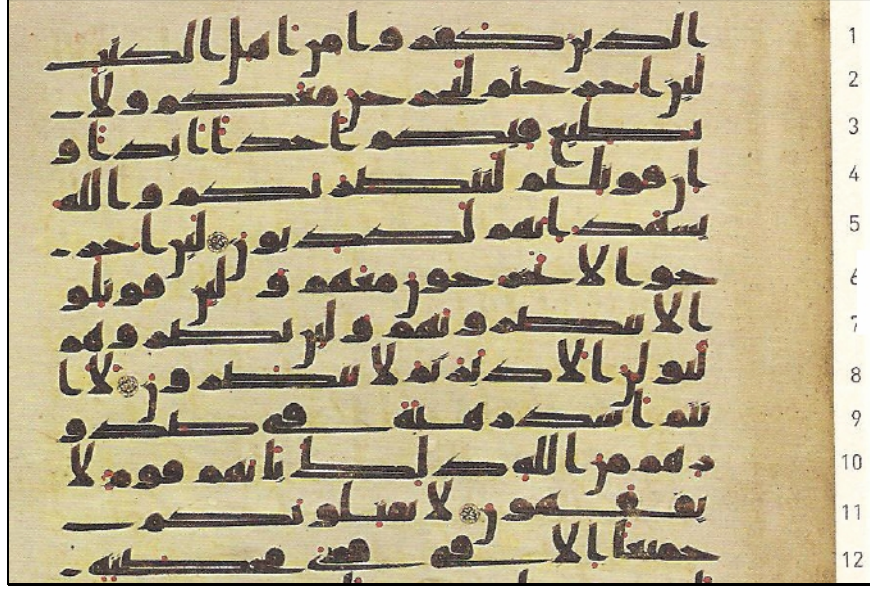 الذين كفروا من اهل الكتب 1
لئن اخرجتم لنخرجن معكم ولا 2
نطيع فيكم احدا ابدا و 3
ان قوتلتم لننصرنكم والله 4
يشهد انهم لكذبون لئن اخر 5
جوا لا يخرجون معهم و لئن قوتلو 6
ا لا ينصرونهم و لئن نصروهم 7
ليولن الادبر ثم لا ينصرون لا ا 8
نتم اشد رهبة في صدو 9
رهم من الله ذلك بانهم قوم لا 10
يفقهون لا يقتلونكم 11
جميعا الا في قرى محصنة 12